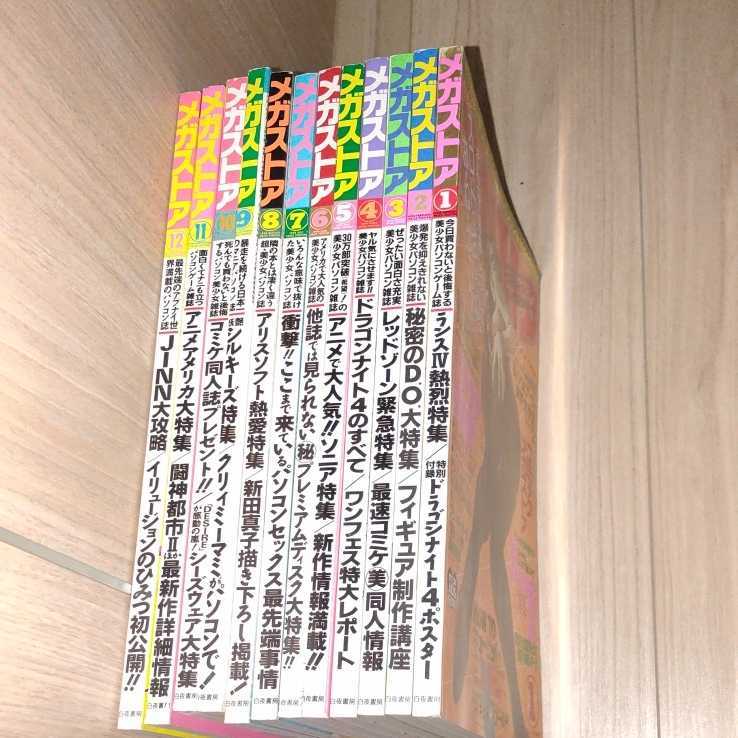 メガストア
1
今日買わないと後悔する
美少女パソコンゲーム誌
ランスIV熱烈特集/特別付録ドラゴンナイト4ポスター
メガストア
2
爆発を抑えきれない
美少女パソコン雑誌
秘密のD.O.大特集/フィギュア制作講座
白夜書房
メガストア
3
ぜったい面白さ充実
美少女パソコン雑誌
レッドゾーン緊急特集/最速コミケ㊝同人情報
白夜書房
メガストア
4
ヤル気にさせます!!
美少女パソコン雑誌
ドラゴンナイト4のすべて/ワンフェス特大レポート
白夜書房
メガストア
5
30万部突破
美少女パソコン雑誌
アニメで大人気!!ソニア特集/新作情報満載!!
白夜書房
メガストア
6
アメリカで大人気の
美少女パソコン雑誌
他誌では見られない㊙プレミアムディスク大特集!!
白夜書房
メガストア
7
いろんな意味で抜け
た美少女パソコン誌
衝撃!!ここまで来ている。パソコンセックス最先端事情
白夜書房
メガストア
8
隣の本とは凄く違う
超・美少女パソコン誌
アリスソフト熱愛特集/新田真子描き下ろし掲載!
白夜書房
メガストア
9
暴走を続ける日本一
シルキーズ特集/クリィミーマミがパソコンで!
白夜書房
メガストア
10
死んでも買わないと後悔
するパソコン美少女雑誌
コミケ同人誌プレゼント!!/「DESIRE」が感動の嵐!シーズウェア大特集
白夜書房
メガストア
11
面白くてナニも立つ
パソコンゲーム雑誌
アニメアメリカ大特集/闘神都市IIほか最新作詳細情報
白夜書房
メガストア
12
最先端のアブナイ世
界満載のパソコン誌
JINN大攻略/イリュージョンのひみつ初公開!!
白夜書房